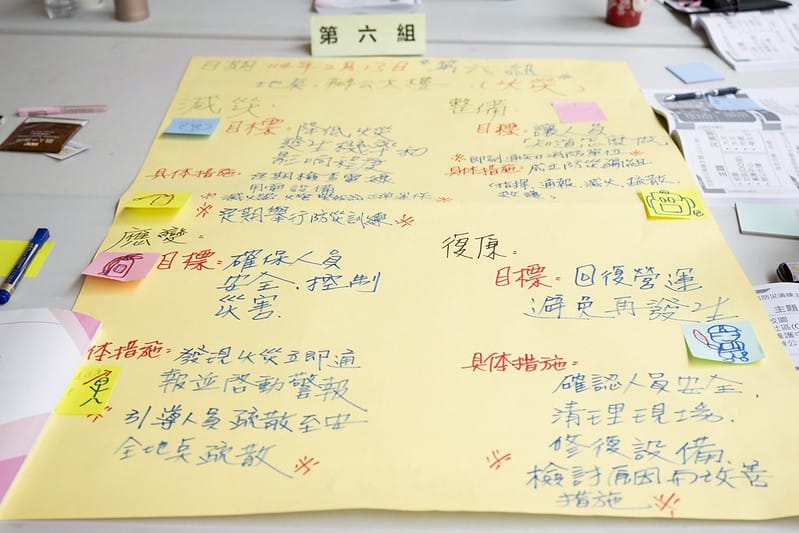 第六組
日期 114年2月13日 第六組
地點：辦公大樓 （火災）
減災：
目標：降低火災
發生機率和
影響程度
具体措施：定期檢查電線
用電設備
定期舉行防災訓練
整備
目標：讓人員
知道怎麼做
即刻通知消防單位
具体措施：成立防災編組
（指揮，通報，滅火，疏散，
救護）
應變：
目標：確保人員
安全．控制
災害．
体措施：發現火災立即通
報並啓動警報
引導人員疏散至安
全地桌疏散
復原：
目標：回復營運
避免再發生
具体措施：
確認人員安全．
清理現場．
修復設備．
檢討原因而改善
措施
主題
校園
社區(C